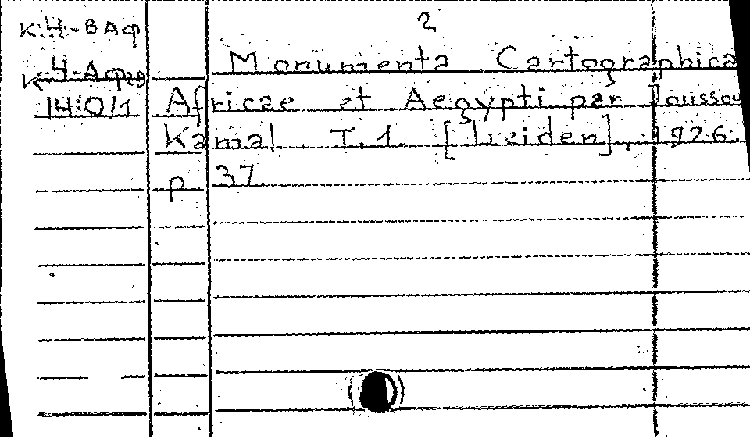 2
К:Ч-ВАф
Monumenta Cartographica
Africae et Aegypti par Joussou
14:0/1
Kamal T.1. [Leiden], 1926.
p 37